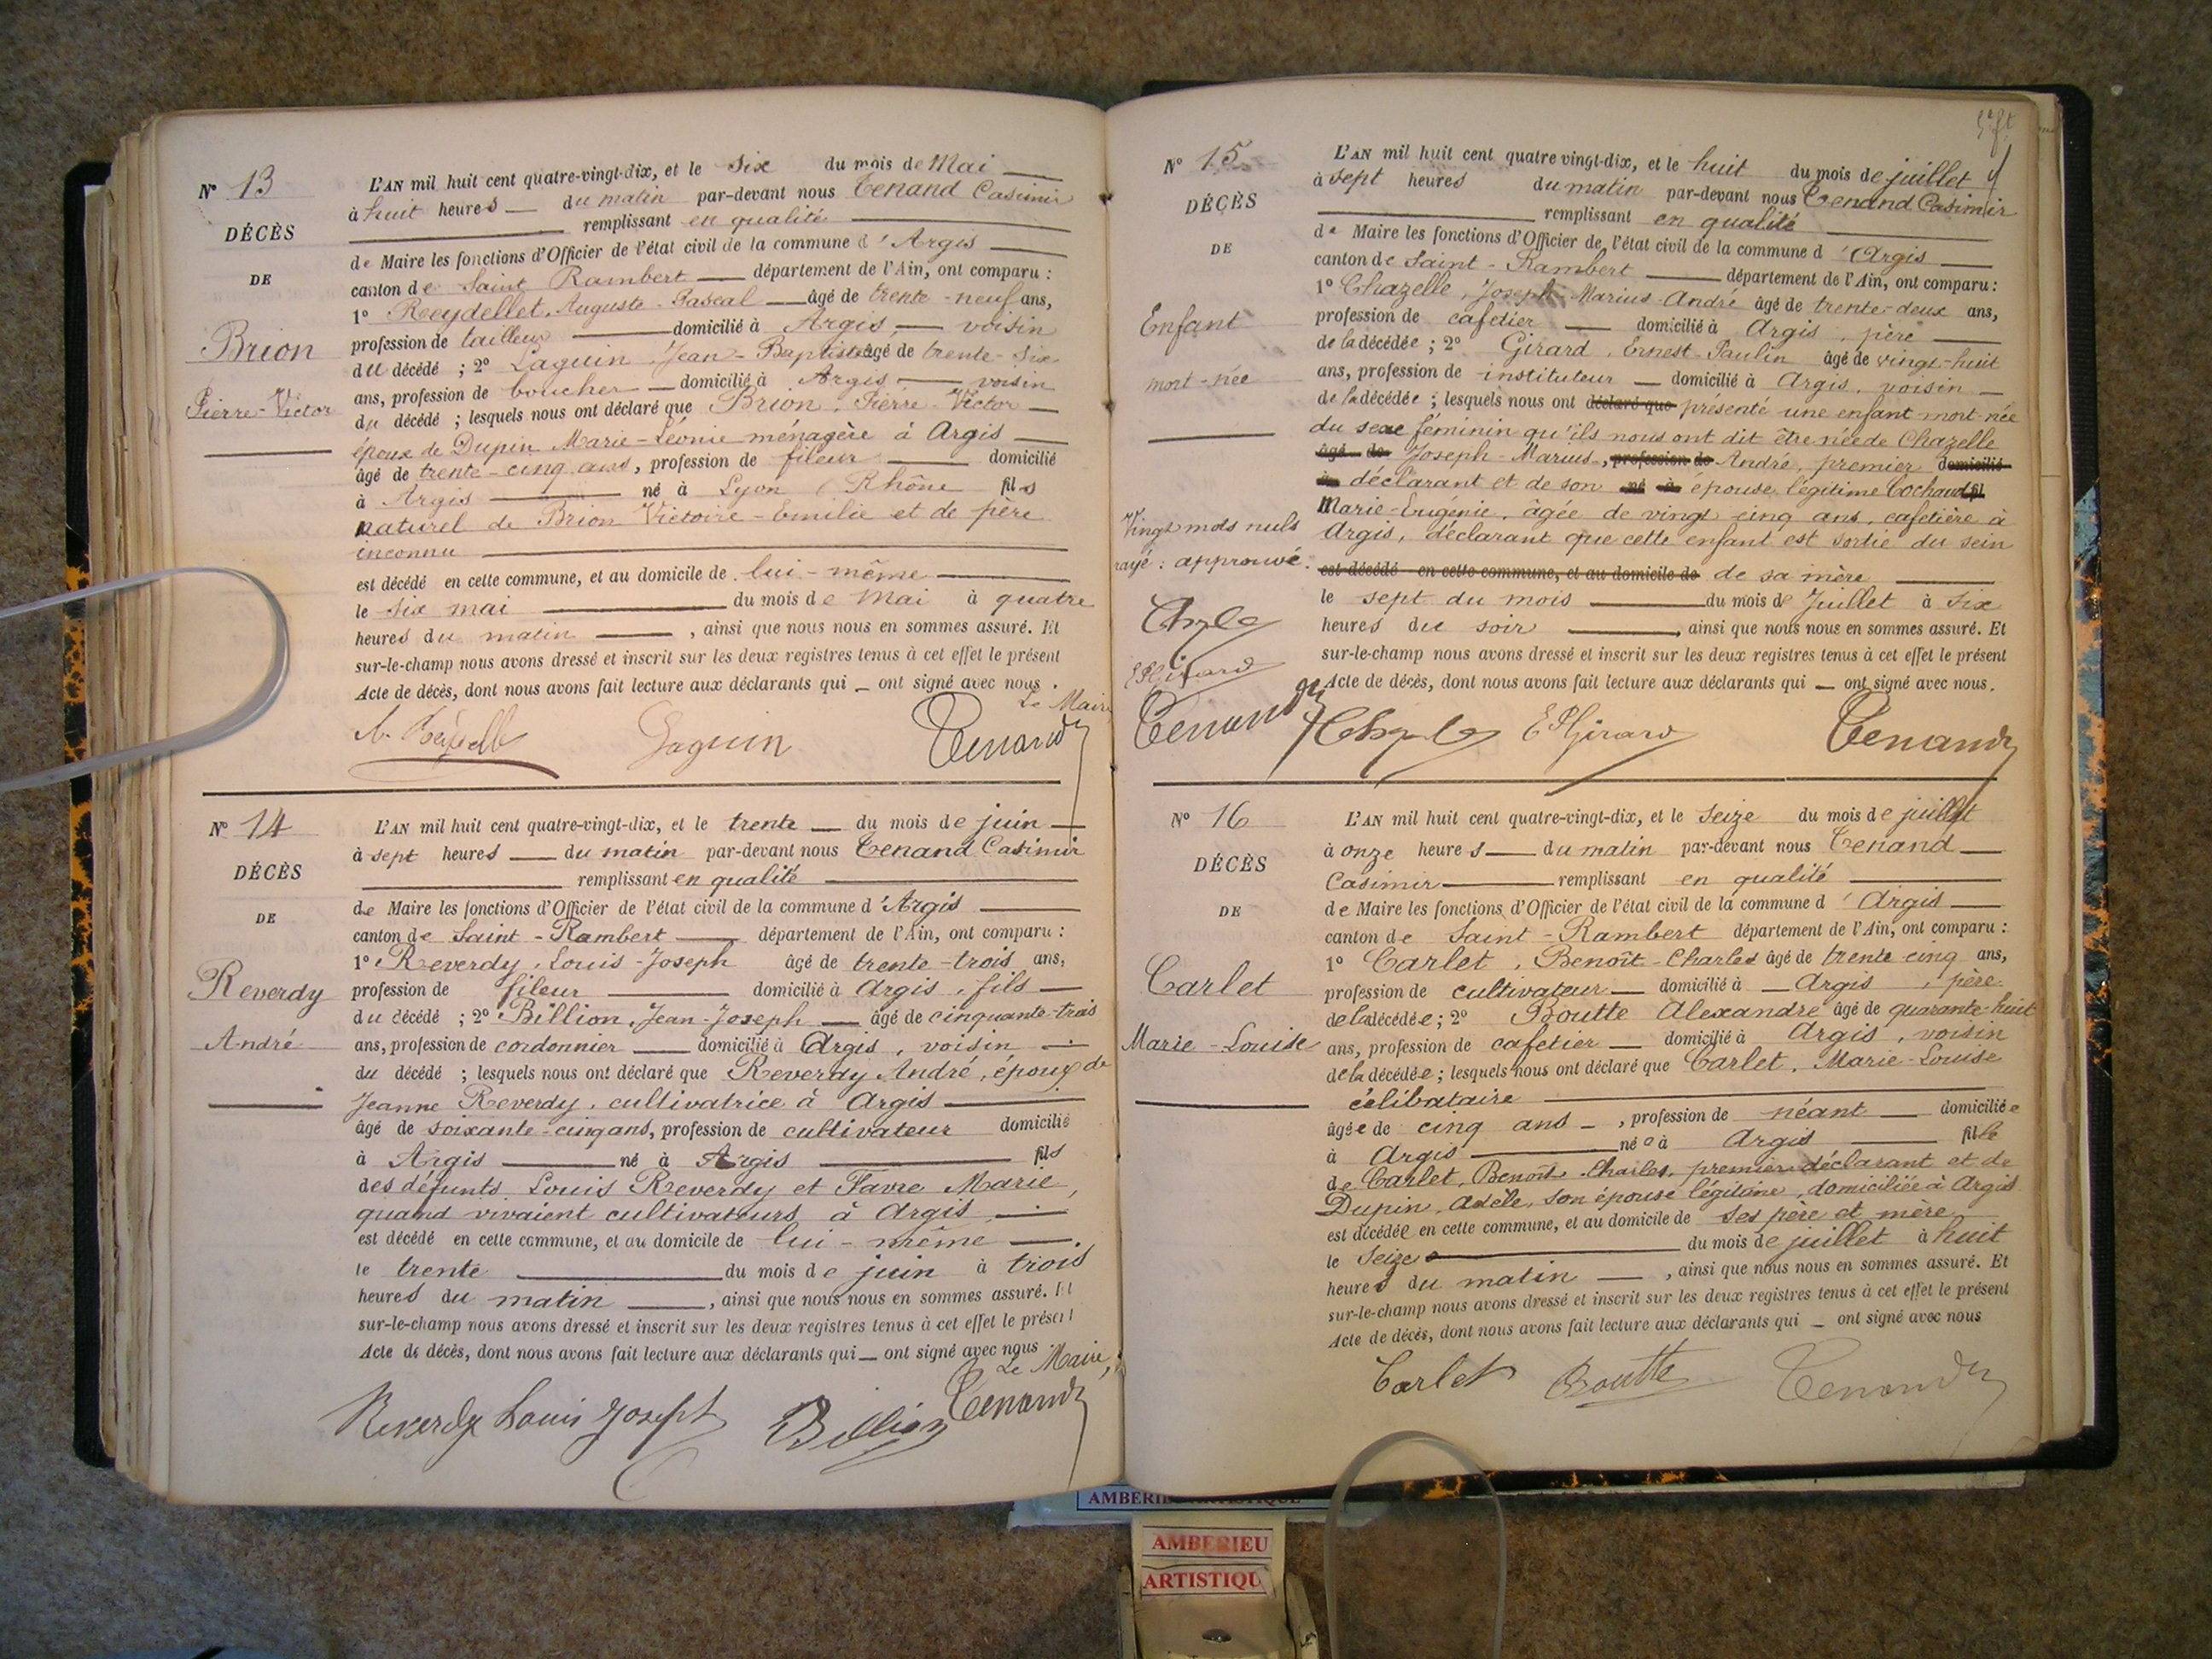 N° 13
DÉCÈS
DE
Brion
Pierre-Victor
L'AN mil huit cent quatre-vingt-dix, et le six du mois de Mai
à huit heures du matin par-devant nous Tenand Casimir
remplissant en qualité
de Maire les fonctions d'Officier de l'état civil de la commune d'Argis
canton de Saint Rambert département de l'Ain, ont comparu :
1° Reydellet, Auguste-Pascal âgé de trente-neuf ans,
profession de tailleur domicilié à Argis, voisin
du décédé ; 2° Laguin, Jean-Baptiste âgé de trente-six
ans, profession de boucher domicilié à Argis voisin
du décédé ; lesquels nous ont déclaré que Brion, Pierre-Victor
époux de Dupin Marie-Léonie ménagère à Argis
âgé de trente-cinq ans, profession de fileur domicilié
à Argis né à Lyon (Rhône fils
naturel de Brion Victoire-Emilie et de père
inconnu
est décédé en cette commune, et au domicile de lui-même
le six mai du mois de Mai à quatre
heures du matin , ainsi que nous nous en sommes assuré. Et
sur-le-champ nous avons dressé et inscrit sur les deux registres tenus à cet effet le présent
Acte de décès, dont nous avons fait lecture aux déclarants qui ont signé avec nous.
Le Maire
Laguin Tenand
N° 14
DÉCÈS
DE
Reverdy
André
L'AN mil huit cent quatre-vingt-dix, et le trente du mois de juin
à sept heures du matin par-devant nous Tenand Casimir
remplissant en qualité
de Maire les fonctions d'Officier de l'état civil de la commune d'Argis
canton de Saint-Rambert département de l'Ain, ont comparu :
1° Reverdy, Louis-Joseph âgé de trente-trois ans,
profession de fileur domicilié à Argis, fils
du décédé ; 2° Billion, Jean-Joseph âgé de cinquante-trois
ans, profession de cordonnier domicilié à Argis, voisin
du décédé ; lesquels nous ont déclaré que Reverdy André, époux de
Jeanne Reverdy, cultivatrice à Argis
âgé de soixante-cinq ans, profession de cultivateur domicilié
à Argis né à Argis fils
des défunts Louis Reverdy et Favre Marie,
quand vivaient cultivateurs à Argis,
est décédé en cette commune, et au domicile de lui-même
le trente du mois de juin à trois
heures du matin , ainsi que nous nous en sommes assuré. Et
sur-le-champ nous avons dressé et inscrit sur les deux registres tenus à cet effet le présent
Acte de décès, dont nous avons fait lecture aux déclarants qui ont signé avec nous.
Le Maire,
Reverdy Louis Joseph Billion Tenand
N° 15
DÉCÈS
DE
Enfant
mort-née
L'AN mil huit cent quatre vingt-dix, et le huit du mois de juillet
à sept heures du matin par-devant nous Tenand Casimir
remplissant en qualité
de Maire les fonctions d'Officier de l'état civil de la commune d'Argis
canton de Saint-Rambert département de l'Ain, ont comparu :
1° Chazelle, Joseph-Marius-André âgé de trente-deux ans,
profession de cafetier domicilié à Argis, père
de la décédée ; 2° Girard, Ernest-Paulin âgé de vingt-huit
ans, profession de instituteur domicilié à Argis, voisin
de la décédée ; lesquels nous ont déclaré que présenté une enfant mort-née
du sexe féminin qu'ils nous ont dit être née de Chazelle
âgé de Joseph-Marius-, profession de André, premier domicilié
à déclarant et de son né à épouse légitime Cochaud fil
Marie-Eugénie, âgée de vingt cinq ans, cafetière à
Argis, déclarant que cette enfant est sortie du sein
est décédé en cette commune, et au domicile de de sa mère
le sept du mois du mois de Juillet à six
heures du soir , ainsi que nous nous en sommes assuré. Et
sur-le-champ nous avons dressé et inscrit sur les deux registres tenus à cet effet le présent
Acte de décès, dont nous avons fait lecture aux déclarants qui ont signé avec nous.
Vingt mots nuls
rayé : approuvé.
EPGirard
Tenand
EPGirard Tenand
N° 16
DÉCÈS
DE
Carlet
Marie-Louise
L'AN mil huit cent quatre-vingt-dix, et le seize du mois de juillet
à onze heures du matin par-devant nous Tenand
Casimir remplissant en qualité
de Maire les fonctions d'Officier de l'état civil de la commune d'Argis
canton de Saint-Rambert département de l'Ain, ont comparu :
1° Carlet, Benoît-Charles âgé de trente cinq ans,
profession de cultivateur domicilié à Argis, père
de la décédée ; 2° Boutte Alexandre âgé de quarante-huit
ans, profession de cafetier domicilié à Argis, voisin
de la décédée ; lesquels nous ont déclaré que Carlet, Marie-Louise
célibataire
âgée de cinq ans , profession de néant domiciliée
à Argis née à Argis fille
de Carlet, Benoît-Charles, premier déclarant et de
Dupin, Adèle, son épouse légitime, domiciliée à Argis
est décédée en cette commune, et au domicile de ses père et mère
le seize du mois de juillet à huit
heures du matin , ainsi que nous nous en sommes assuré. Et
sur-le-champ nous avons dressé et inscrit sur les deux registres tenus à cet effet le présent
Acte de décès, dont nous avons fait lecture aux déclarants qui ont signé avec nous
Carlet Boutte Tenand
AMBERIEU ARTISTIQUE
AMBERIEU
ARTISTIQU